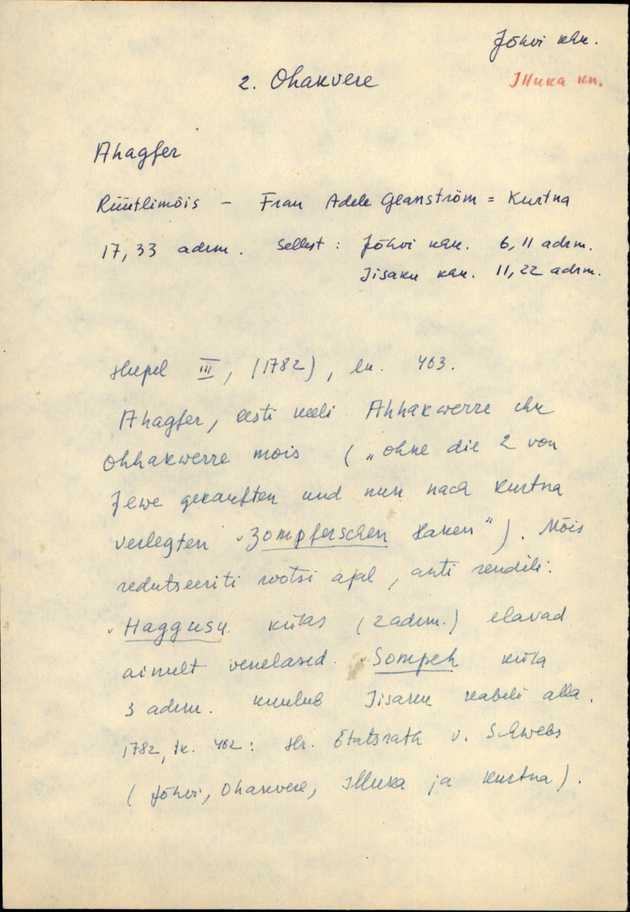 Jõhvi khk.
Illuka kn.
2. Ohakvere
Ahagfer
Rüütlimõis – Frau Adele Glanström = Kurtna
17,33 adrm. Sellest: Jõhvi khk. 6,11 adrm.
Jisaku khk. 11,22 adrm.
Hupel III, (1782), lk. 463.
Ahagfer, eesti keeli Ahhakwerre ehk
Ohhakwerre mois („ohne die 2 von
Jewe gekauften und nun nach Kurtna
verlegten Zompferschen Haken"). Mõis
redutseeriti rootsi ajal, anti rendile.
Haggusy külas (2 adrm.) elavad
ainult venelased. Sompeh küla
3 adrm. kuulub Jisaku kabeli alla.
1782, lk. 462: Hr. Etatsrath v. Schwebs
(Jõhvi, Ohakvere, Illuka ja Kurtna).